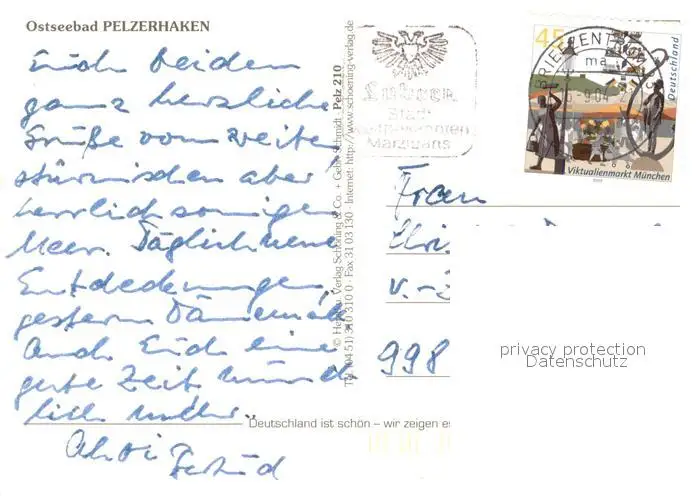 Ostseebad PELZERHAKEN
Euch beiden
ganz herzliche
Grüße vom weiten
stürmischen aber
herrlich sonnigen
Meer. Täglich neue
Entdeckungen,
gestern Dänemark
Auch Euch eine
gute Zeit wünsch
lich
© Verlag Schöning & Co. + Gebr. Schmidt · Pelz 210
Tel. (04 51) 310 310 0 · Fax 31 03 130 · Internet: http://www.schoening-verlag.de
Lübeck
Stadt
Marzipans
BRIEFZENTRUM
45
Deutschland
Viktualienmarkt München
Frau
v.-
998
privacy protection
Datenschutz
Deutschland ist schön – wir zeigen es